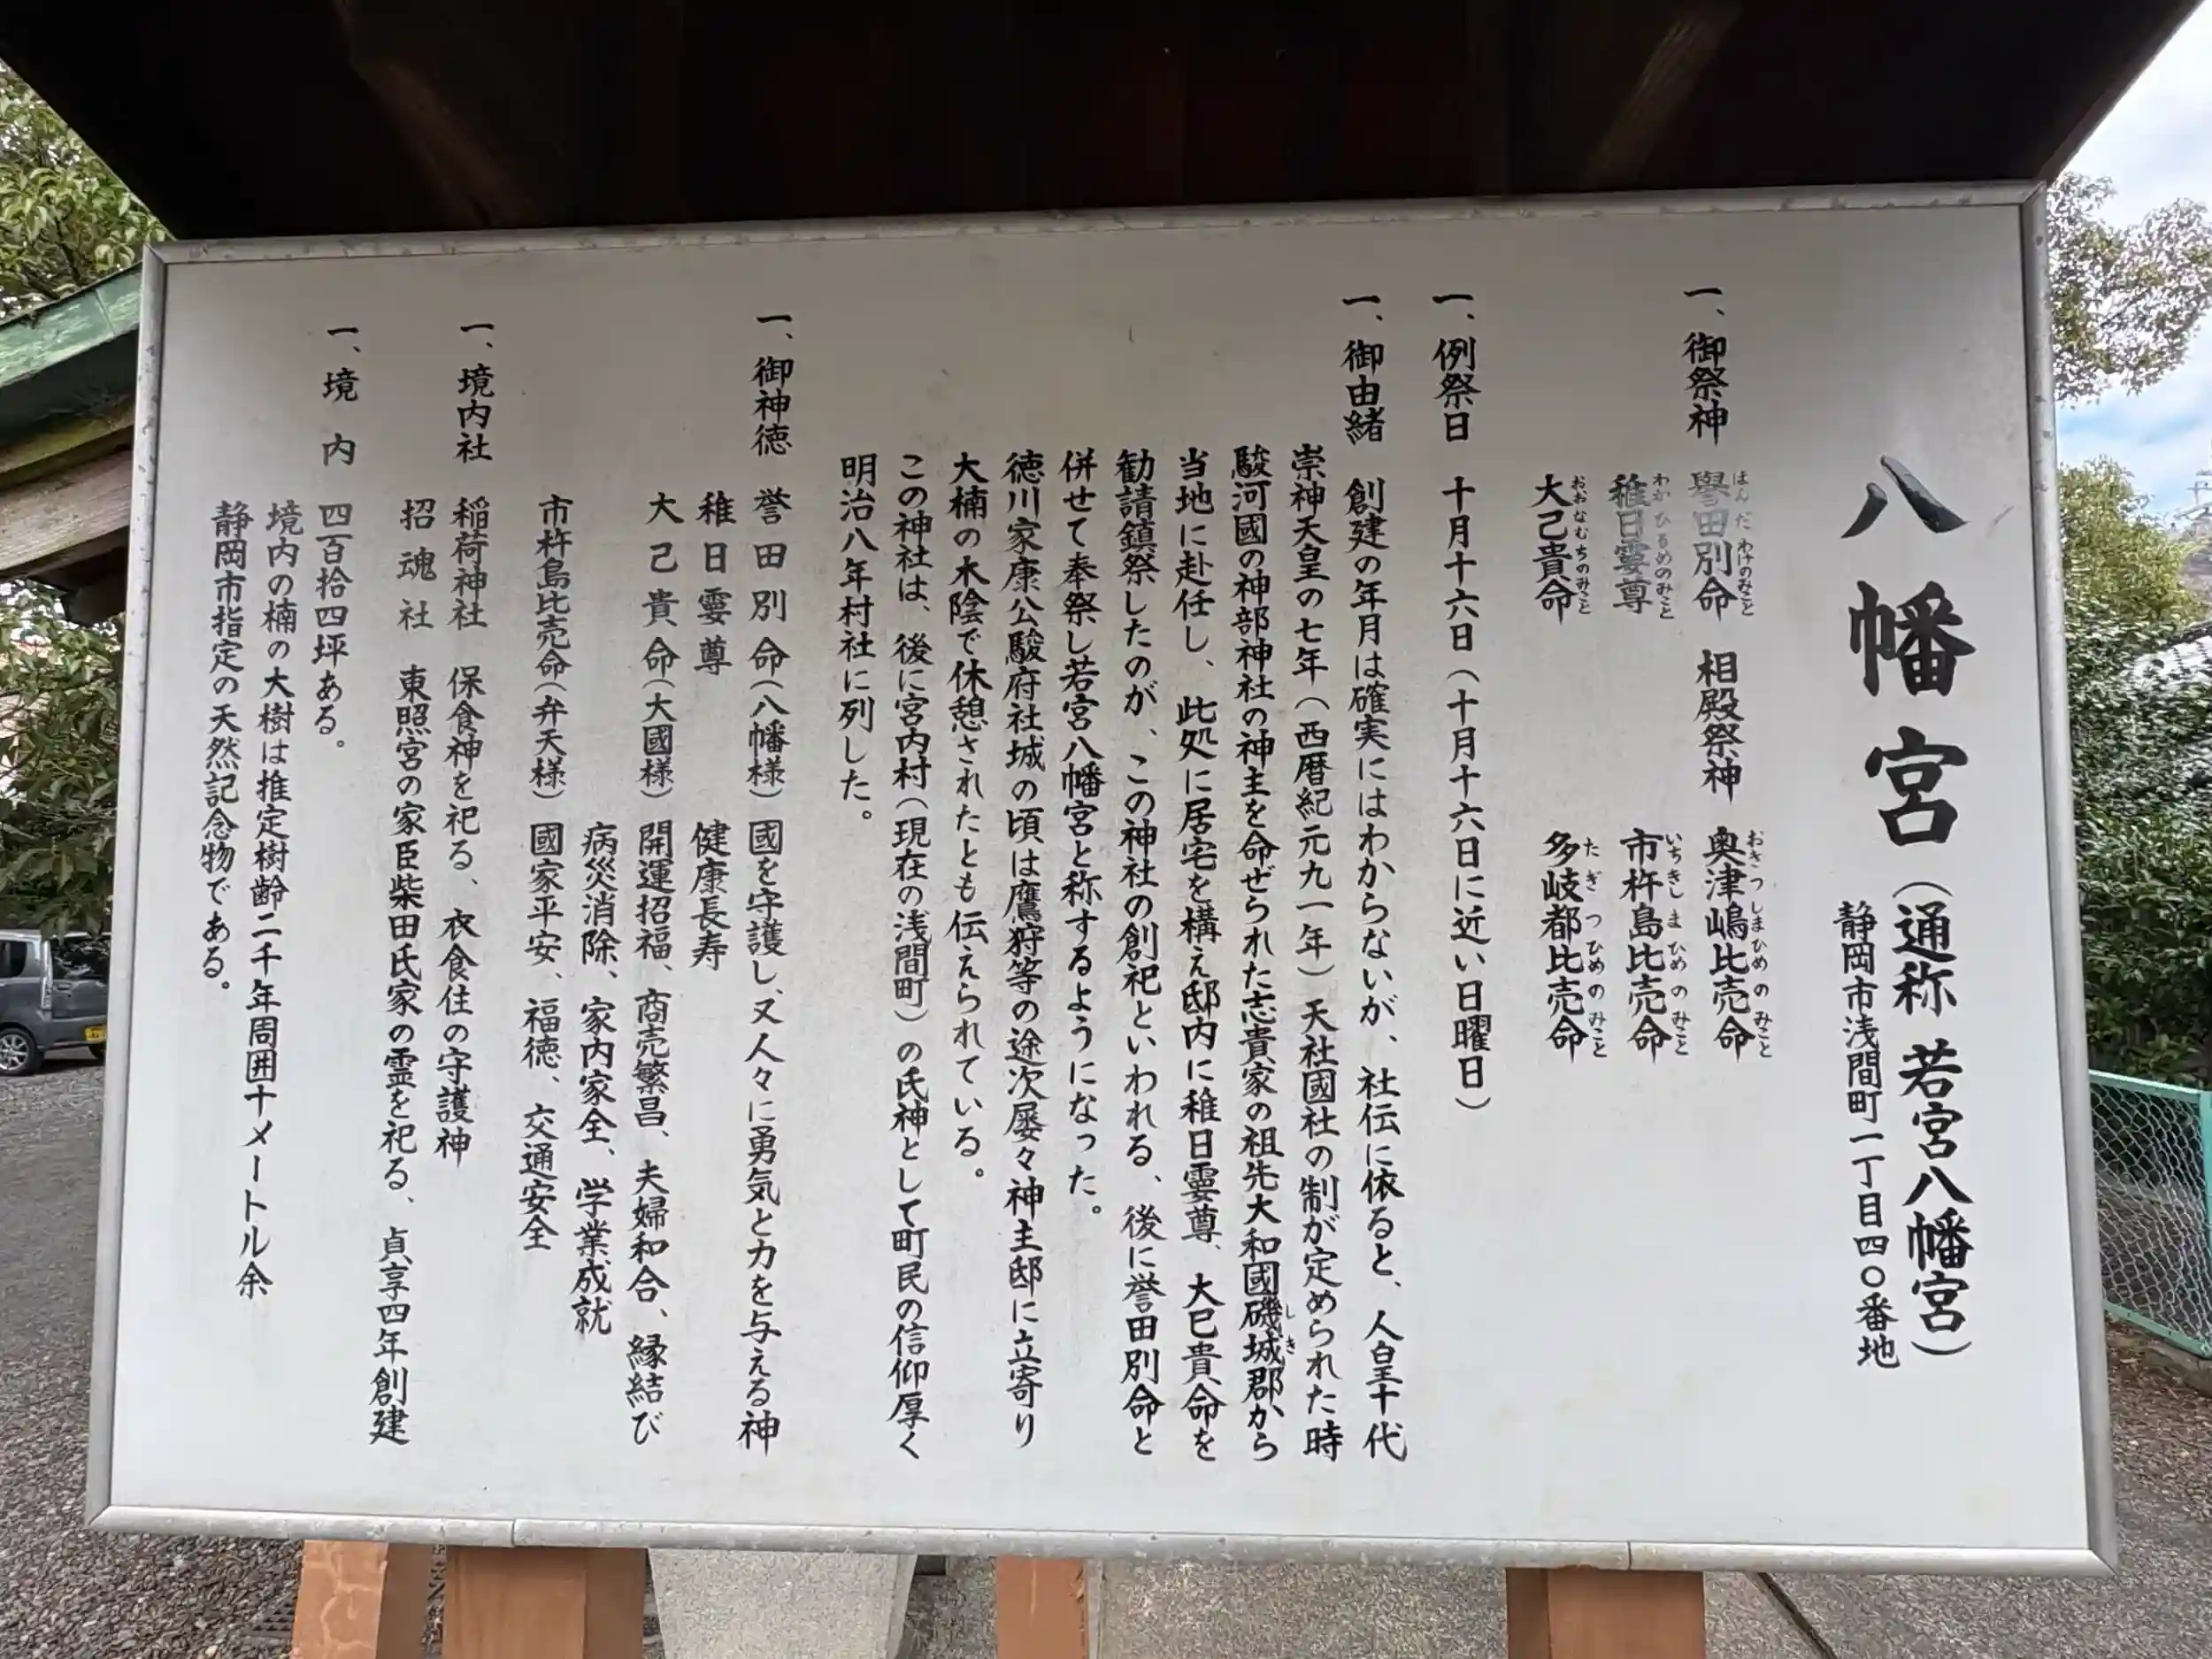 八幡宮（通称 若宮八幡宮）
静岡市浅間町一丁目四〇番地
一、御祭神 譽田別命 相殿祭神 奥津嶋比売命
はんだわけのみこと おきつしまひめのみこと
稚日孁尊 市杵島比売命
わかひるめのみこと いちきしまひめのみこと
大己貴命 多岐都比売命
おおなむちのみこと たぎつひめのみこと
一、例祭日 十月十六日（十月十六日に近い日曜日）
一、御由緒 創建の年月は確実にはわからないが、社伝に依ると、人皇十代
崇神天皇の七年（西暦紀元九一年）天社國社の制が定められた時
駿河國の神部神社の神主を命ぜられた志貴家の祖先大和國磯城郡から
しき
当地に赴任し、此処に居宅を構え邸内に稚日孁尊、大巳貴命を
勧請鎮祭したのが、この神社の創祀といわれる、後に誉田別命と
併せて奉祭し若宮八幡宮と称するようになった。
徳川家康公駿府社城の頃は鷹狩等の途次屡々神主邸に立寄り
大楠の木陰で休憩されたとも伝えられている。
この神社は、後に宮内村（現在の浅間町）の氏神として町民の信仰厚く
明治八年村社に列した。
一、御神徳 誉田別命（八幡様）國を守護し、又人々に勇気と力を与える神
稚日孁尊 健康長寿
大己貴命（大國様）開運招福、商売繁昌、夫婦和合、縁結び
病災消除、家内家全、学業成就
市杵島比売命（弁天様）國家平安、福徳、交通安全
一、境内社 稲荷神社 保食神を祀る、衣食住の守護神
招魂社 東照宮の家臣柴田氏家の霊を祀る、貞享四年創建
一、境内 四百拾四坪ある。
境内の楠の大樹は推定樹齢二千年周囲十メートル余
静岡市指定の天然記念物である。